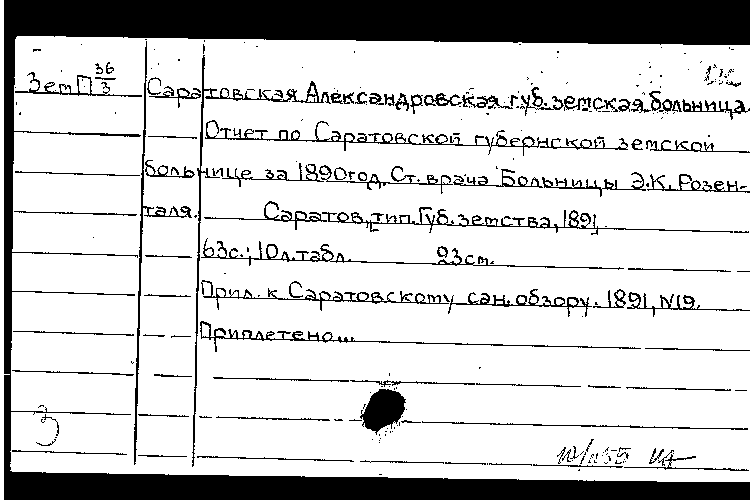 Зем П 36/3
Саратовская Александровская губ. земская больница
Отчет по Саратовской губернской земской
больнице за 1890 год. Ст. врача Больницы Э.К. Розен-
таля. Саратов, тип. Губ. земства, 1891,
63с.; 10л. табл. 23см.
Прил. к Саратовскому сан. обзору. 1891, №19.
Приплетено...
3